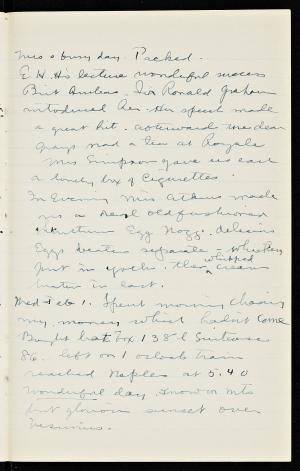 Tues a busy day. Packed.
E. H. H's lecture wonderful success
Big Audience. Sir Ronald Graham
introduced her. Her speech made
a great hit. afterward the dear
grays had a tea at Royale
Mrs Simpson gave us each
a lovely box of Cigarettes.
In Evening Miss Atkins made
us a real old fashioned
Egg Nogg. delicious
Eggs beaten separate - whiskey
put in yolks. then whipped cream
beaten in last.
Wed Feb 1. Spent morning chasing
my money which hadn't come
Bought hat box 138 l Suitcase
86. left on 1 o'clock train
reached Naples at 5.40
wonderful day. Snow on mts
but glorious sunset over
Vesuvius.